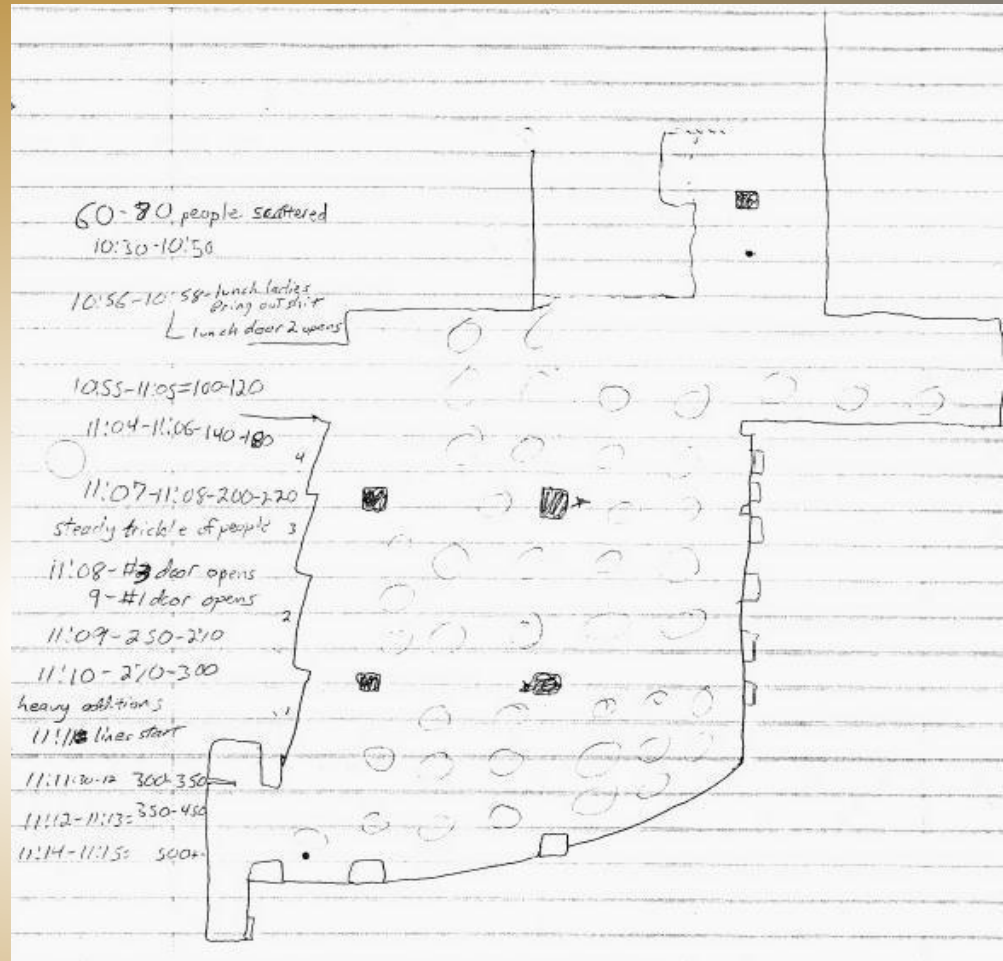 60-80 people scattered
10:30-10:50
10:56-10:58-lunch ladies
bring out shit
lunch door 2 opens
10:55-11:05=100-120
11:04-11:06-140-180
4
11:07-11:08-200-220
steady trickle of people
3
11:08-#3 door opens
9-#1 door opens
2
11:09-250-270
11:10-270-300
heavy additions
1
lines start
11:11:30-12 300-350
11:12-11:13=350-450
11:14-11:15= 500+